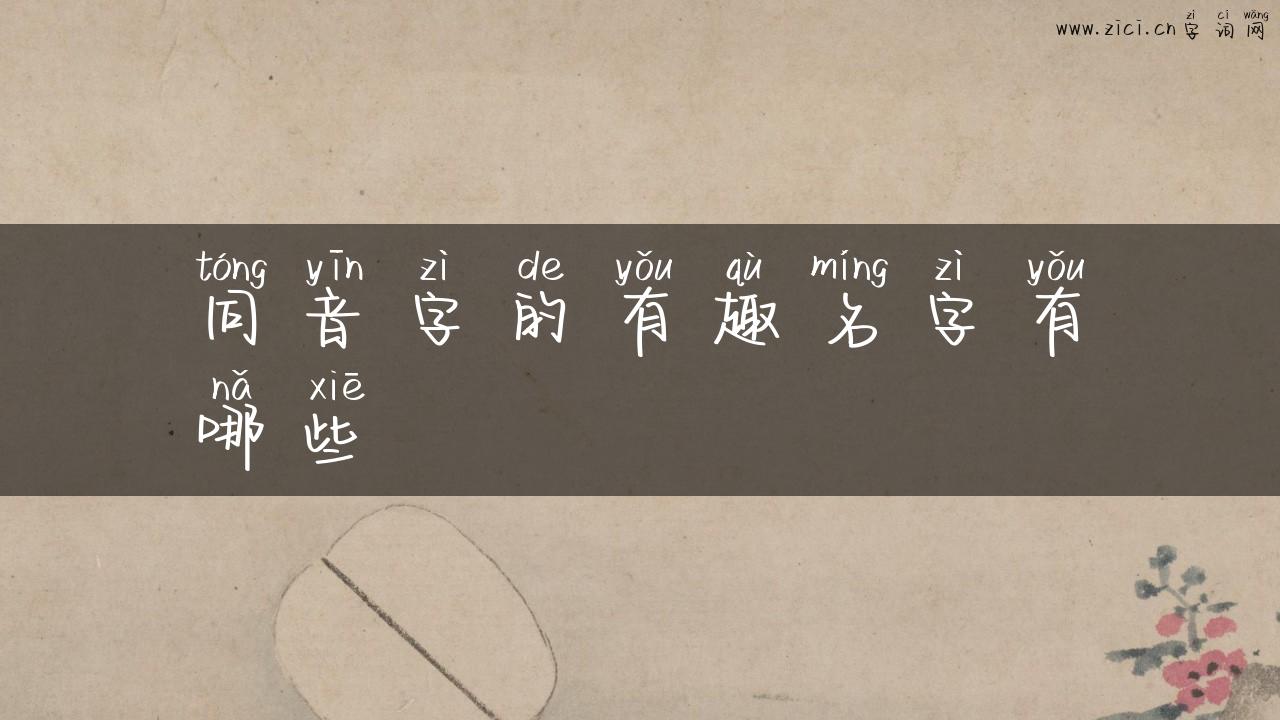 zì cí wǎng
www.zici.cn 字词网
tóng yīn zì de yǒu qù míng zì yǒu
同音字的有趣名字有
nǎ xiē
哪些